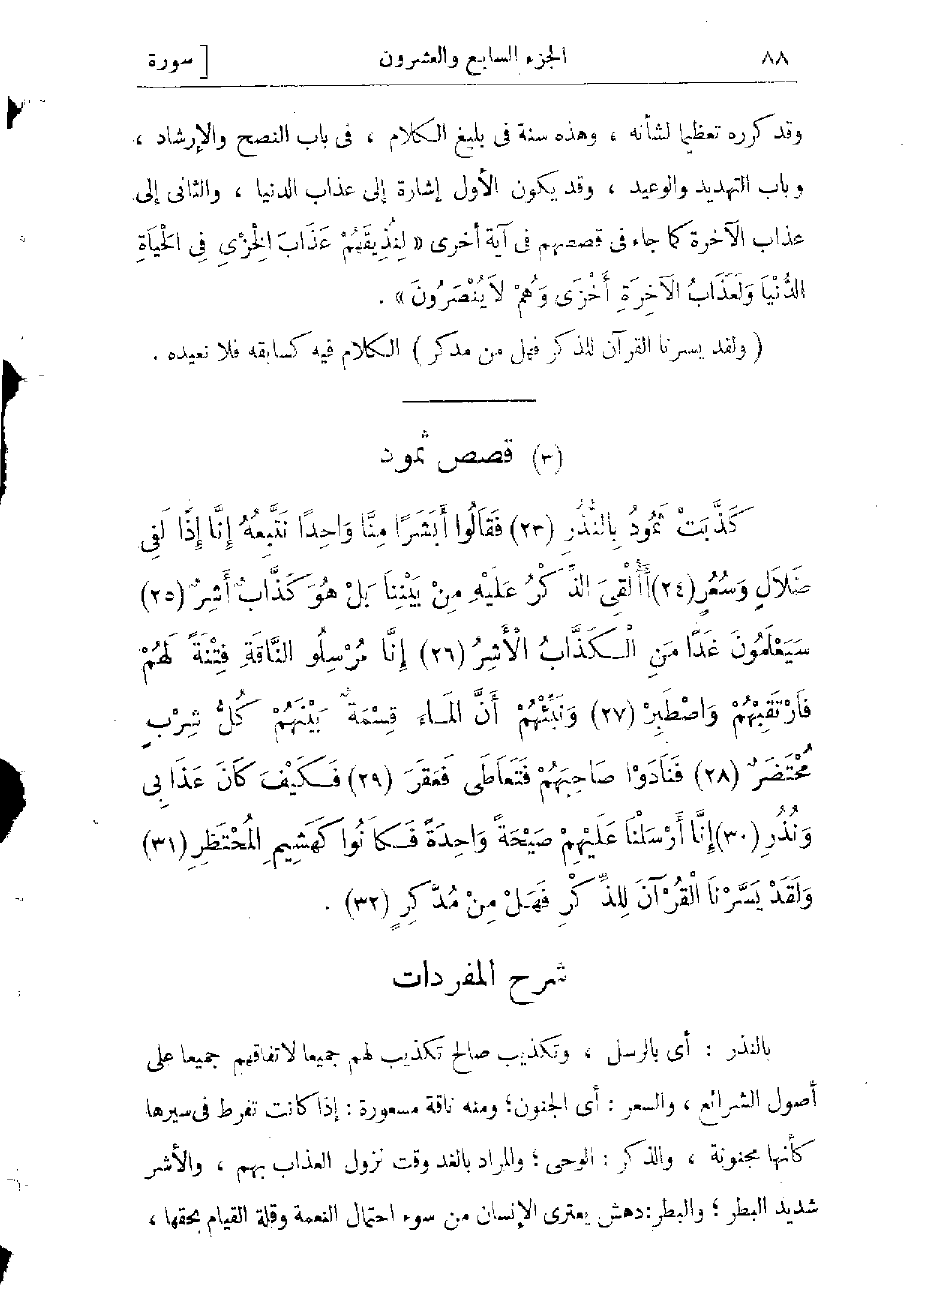 ٨٨ الجزء السابع والعشرون [ سورة
وقد كرره تعظيما لشأنه ، وهذه سنة فى بليغ الكلام ، فى باب النصح والإرشاد ،
وباب التهديد والوعيد ، وقد يكون الأول إشارة إلى عذاب الدنيا ، والثانى إلى
عذاب الآخرة كما جاء فى قصصهم فى آية أخرى « لِنُذِيقَهُمْ عَذَابَ الْخِزْيِ فِي الْحَيَاةِ
الدُّنْيَا وَلَعَذَابُ الآخِرَةِ أَخْزَى وَهُمْ لاَ يُنْصَرُونَ » .
( ولقد يسرنا القرآن للذكر فهل من مدكر ) الكلام فيه كسابقه فلا نعيده .
(٣) قصص ثمود
كَذَّبَتْ ثَمُودُ بِالنُّذُرِ (٢٣) فَقَالُوا أَبَشَرًا مِنَّا وَاحِدًا نَتَّبِعُهُ إِنَّا إِذًا لَفِي
ضَلاَلٍ وَسُعُرٍ (٢٤) أَأُلْقِيَ الذِّكْرُ عَلَيْهِ مِنْ بَيْنِنَا بَلْ هُوَ كَذَّابٌ أَشِرٌ (٢٥)
سَيَعْلَمُونَ غَدًا مَنِ الْكَذَّابُ الْأَشِرُ (٢٦) إِنَّا مُرْسِلُو النَّاقَةِ فِتْنَةً لَهُمْ
فَارْتَقِبْهُمْ وَاصْطَبِرْ (٢٧) وَنَبِّئْهُمْ أَنَّ الْمَاء قِسْمَةٌ بَيْنَهُمْ كُلُّ شِرْبٍ
مُحْتَضَرٌ (٢٨) فَنَادَوْا صَاحِبَهُمْ فَتَعَاطَى فَعَقَرَ (٢٩) فَكَيْفَ كَانَ عَذَابِي
وَنُذُرِ (٣٠) إِنَّا أَرْسَلْنَا عَلَيْهِمْ صَيْحَةً وَاحِدَةً فَكَانُوا كَهَشِيمِ الْمُحْتَظِرِ (٣١)
وَلَقَدْ يَسَّرْنَا الْقُرْآنَ لِلذِّكْرِ فَهَلْ مِنْ مُدَّكِرٍ (٣٢) .
شرح المفردات
بالنذر : أى بالرسل ، وتكذيب صالح تكذيب لهم جميعا لاتفاقهم جميعا على
أصول الشرائع ، والسعر : أى الجنون ؛ ومنه ناقة مسعورة : إذا كانت تفرط فى سيرها
كأنها مجنونة ، والذكر : الوحى ؛ والمراد بالغد وقت نزول العذاب بهم ، والأشر
شديد البطر ؛ والبطر : دهش يعترى الإنسان من سوء احتمال النعمة وقلة القيام بحقها ،